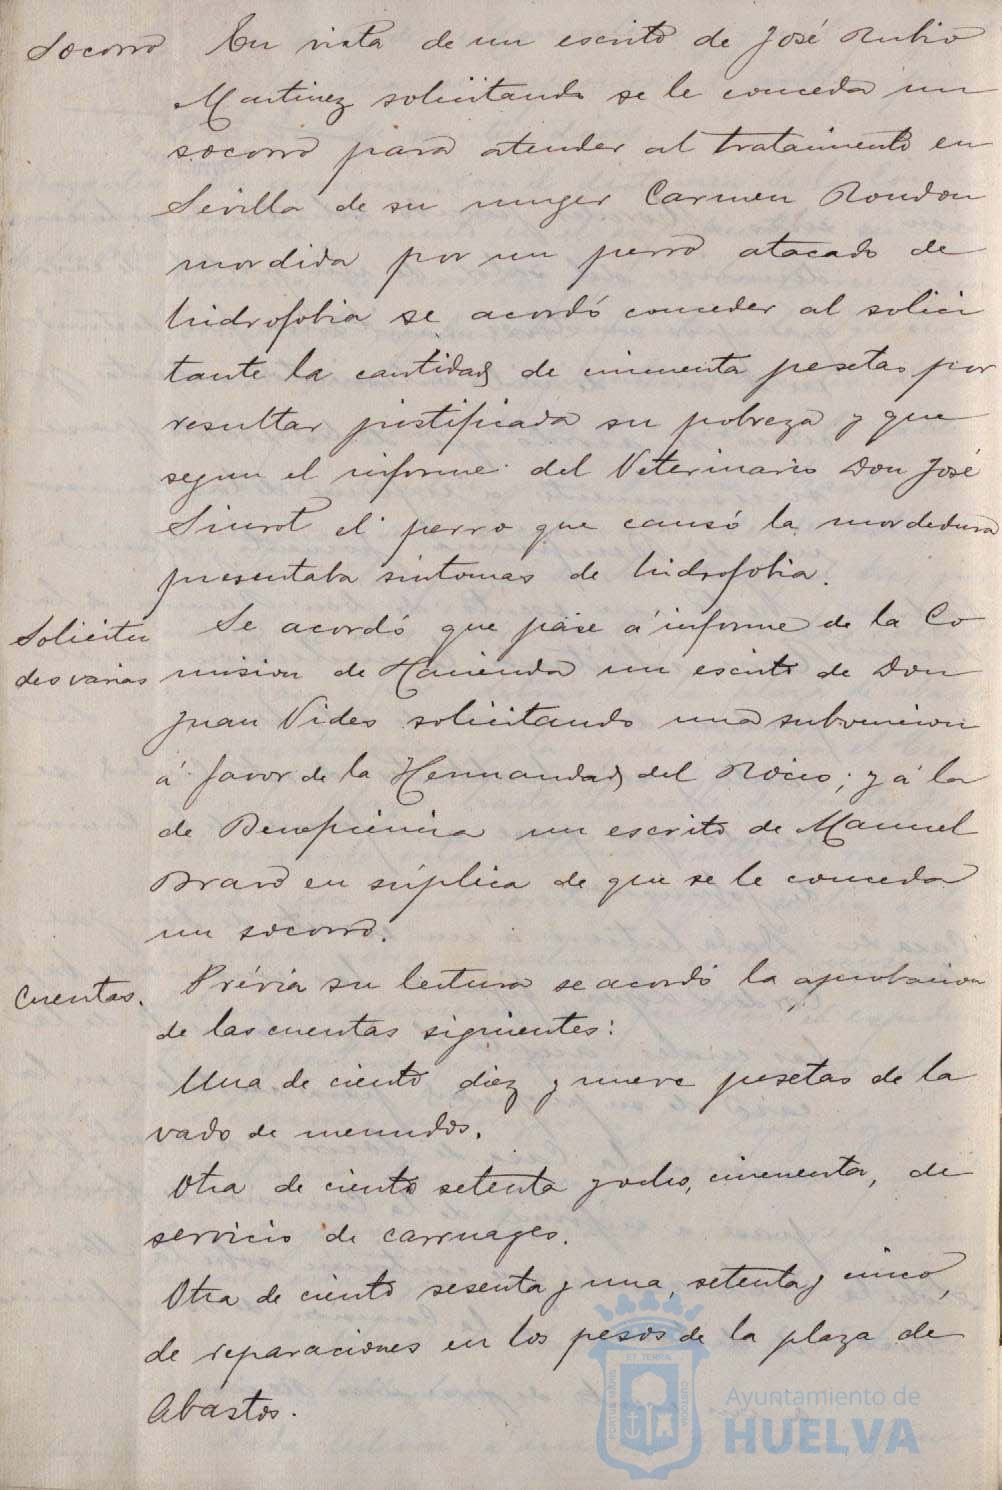 Socorro En vista de un escrito de José Rubio
Martinez solicitando se le conceda un
socorro para atender al tratamiento en
Sevilla de su muger Carmen Rondon
mordida por un perro atacado de
hidrofobia se acordó conceder al solici
tante la cantidad de cincuenta pesetas por
resultar justificada su pobreza y que
segun el informe del Veterinario Don José
Siurot el perro que causó la mordedura
presentaba sintomas de hidrofobia.
Solicitu Se acordó que pase á informe de la Co
des varias mision de Hacienda un escrito de Don
Juan Vides solicitando una subvencion
á favor de la Hermandad del Rocio; y á la
de Beneficencia un escrito de Manuel
Bravo en súplica de que se le conceda
un socorro.
Cuentas. Prévia su lectura se acordó la aprobacion
de las cuentas siguientes:
Una de ciento diez y nueve pesetas de la
vado de menudos.
Otra de ciento setenta y ocho, cincuenta, de
servicio de carruages.
Otra de ciento sesenta y una, setenta y cinco,
de reparaciones en los pesos de la plaza de
Abastos.
ET TERRÆ
PORTUS MARIS
CUSTODIA
Ayuntamiento de
HUELVA